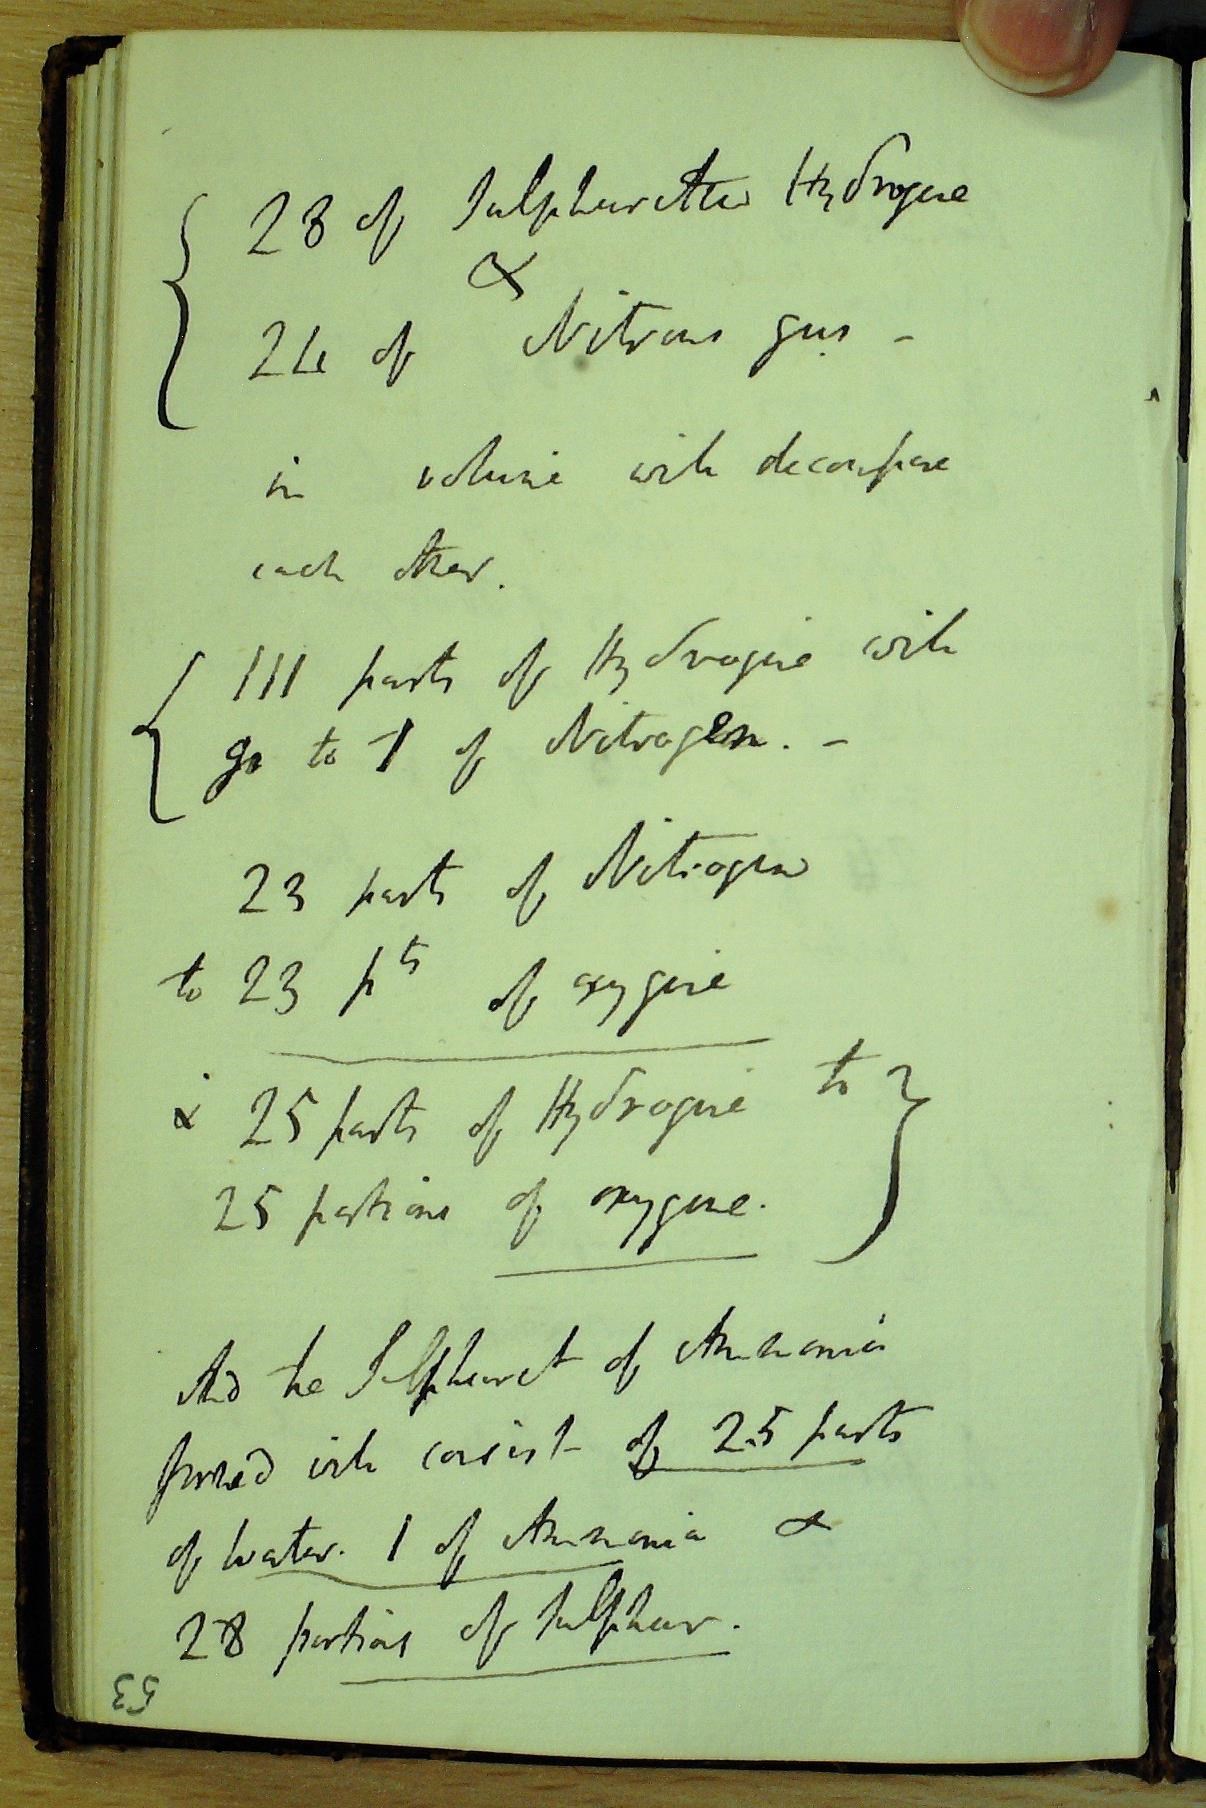 28 of Sulphuretted Hydrogene
&
24 of Nitrous gas -
in volume will decompose
each other.
111 parts of Hydrogene will
go to 1 of Nitrogen. -
23 parts of Nitrogen
to 23 pts of oxygene
& 25 parts of Hydrogene to
25 portions of oxygene.
And the Sulphuret of Ammonia
formed will consist of 25 parts
of water. 1 of Ammonia &
28 portions of Sulphur.
53